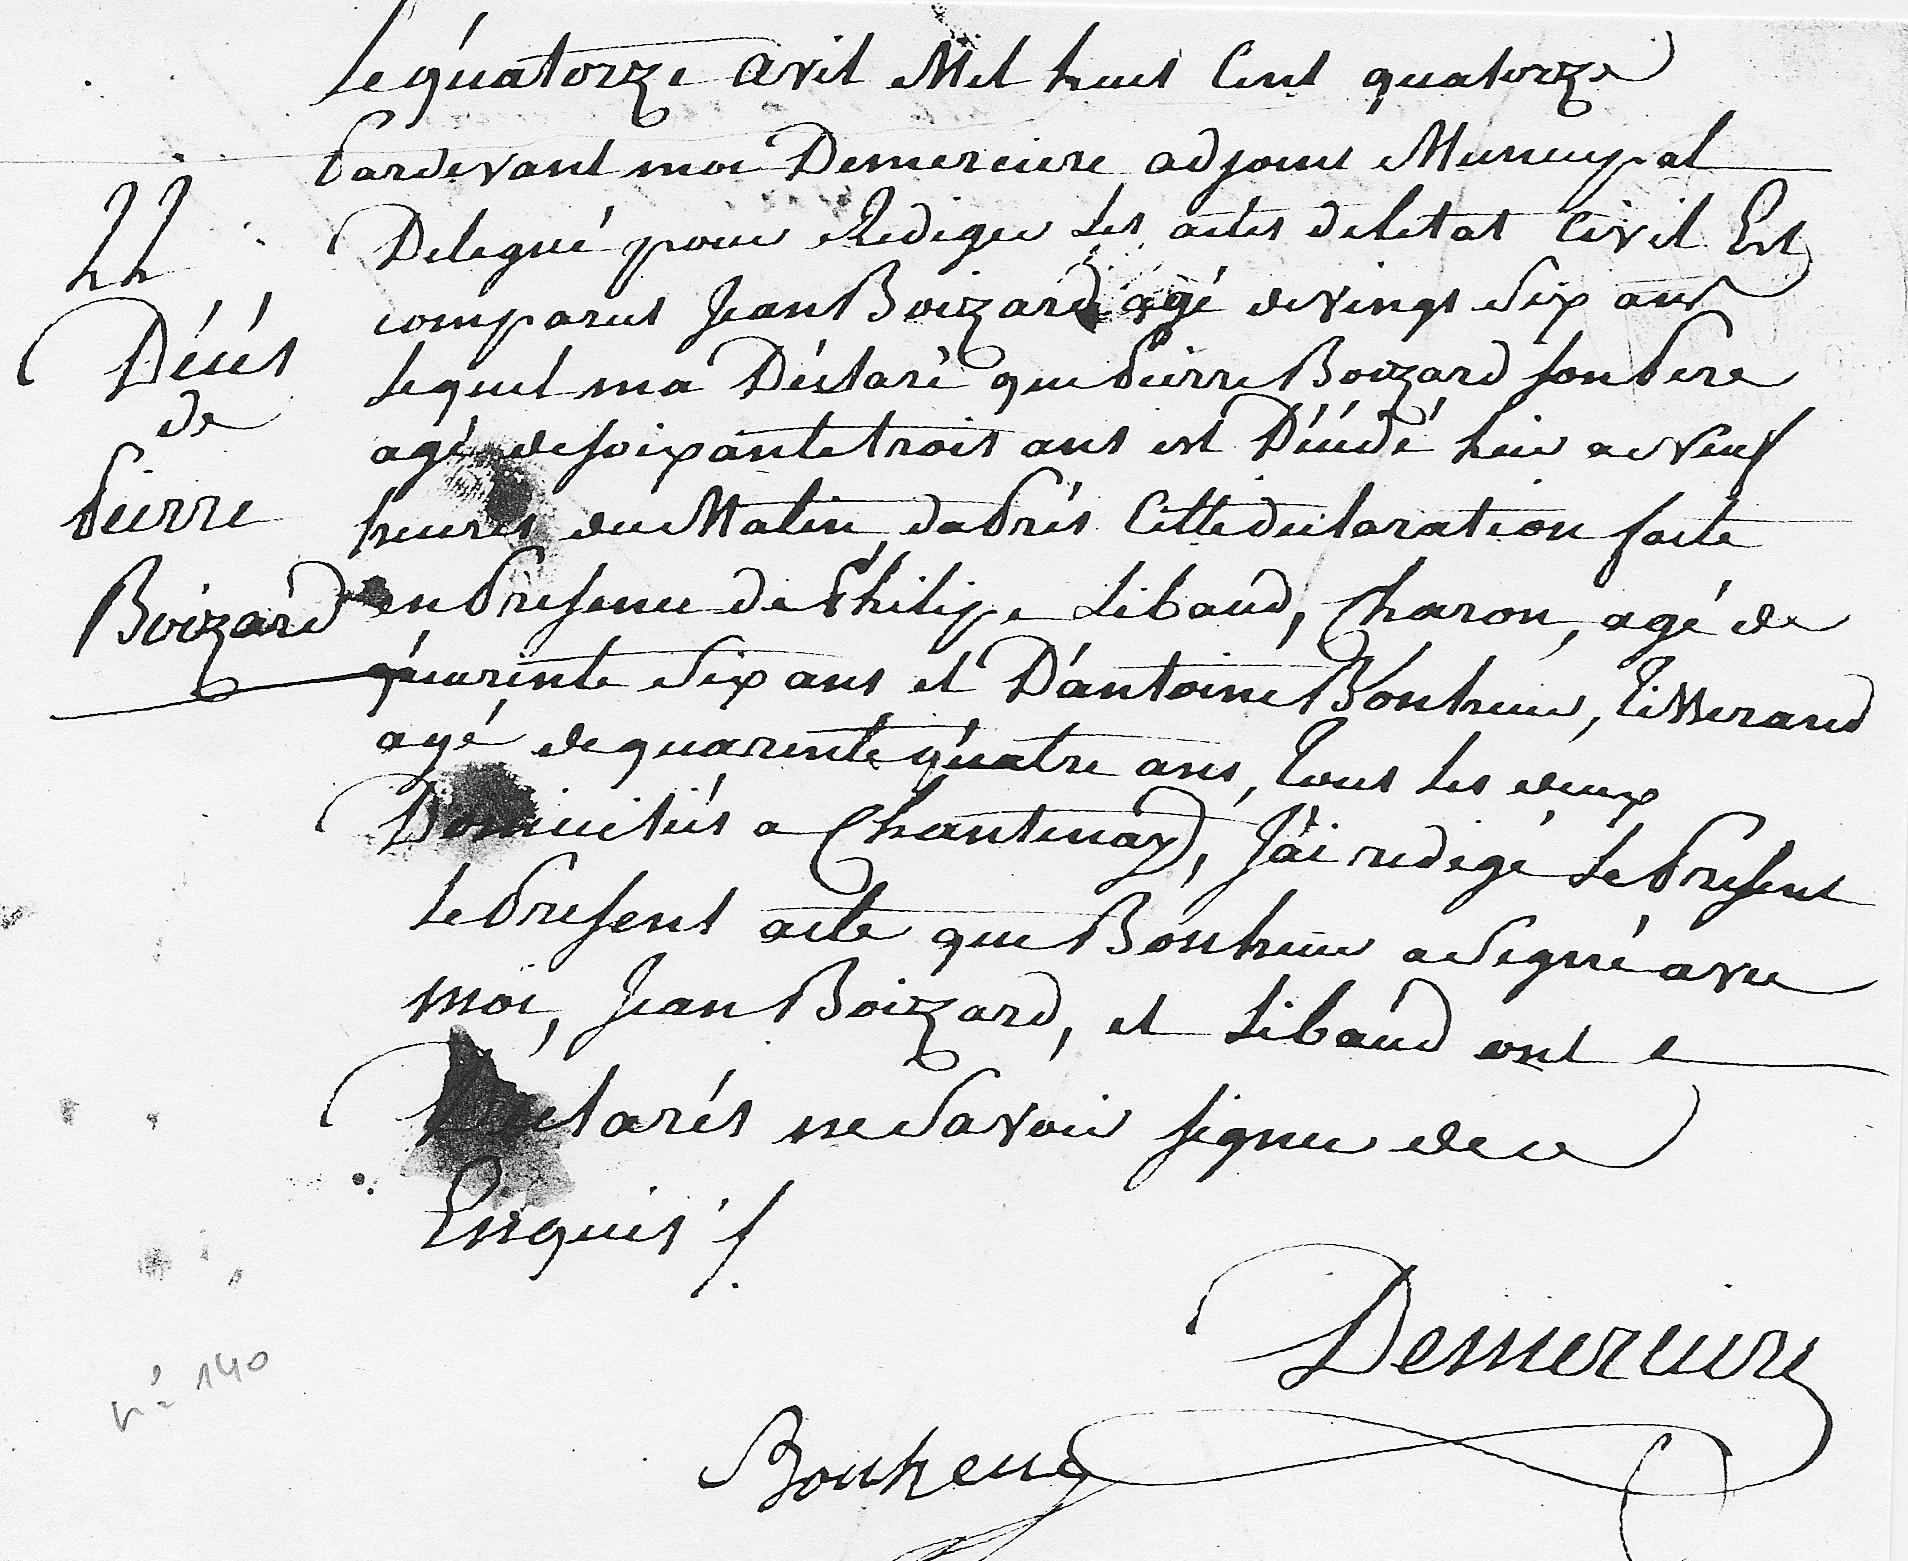 Le quatorze avril Mil huit Cent quatorze
Pardevant moi Demerciere adjoint Municipal
22
Delegué pour Rediger Les actes deletat Civil Est
comparut Jean Boizard agé devingt Six ans
Décés
Lequel ma Déclaré que Pierre Boizard son Pere
de
agé desoixante trois ans est Décédé hier a Neuf
Pierre
heures du Matin, daPrés Cette declaration faite
Boizard
en Présence de Philipe Libaud, Charon, agé de
quarente Six ans et D'antoine Bonheur, Tisserand
agé de quarente quatre ans, Tous Les deux
Domiciliés a Chantenay, J'ai redigé Le Present
Le Present acte que Bonheur a Signé avec
moi, Jean Boizard, et Libaud ont
Déclarés ne Savoir signer de ce
Enquis
Demerciere
n° 140
Bonheur